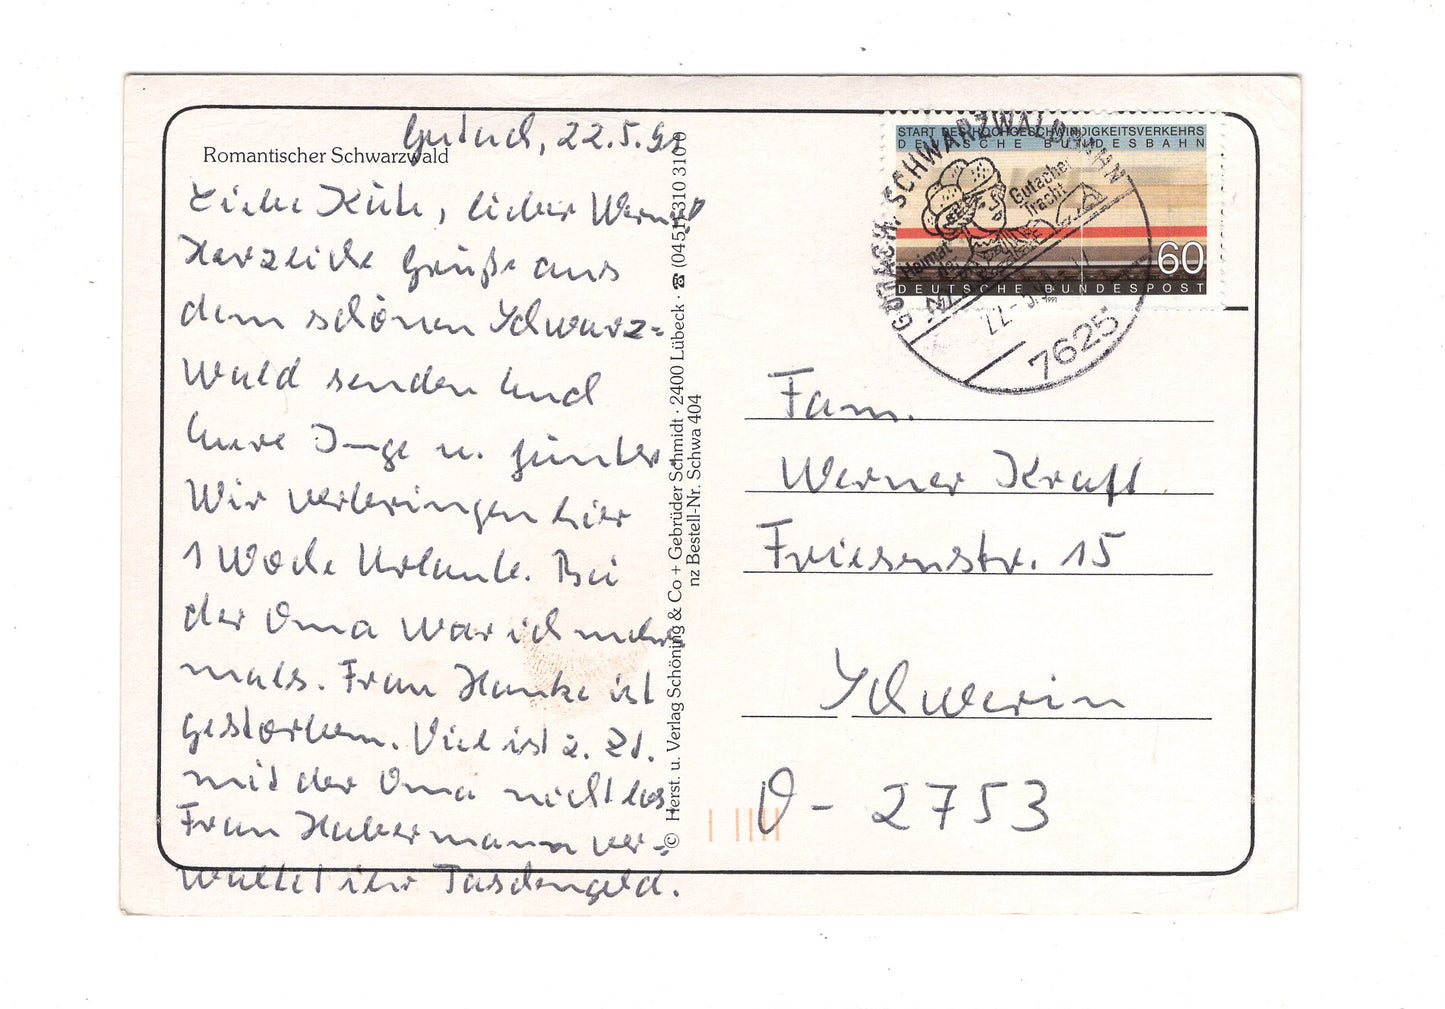 Gutach, 22.5.91
Romantischer Schwarzwald
Liebe Käte, lieber Werner!
Herzliche Grüße aus
dem schönen Schwarz=
wald senden Euch
Eure Inge u. Günter
Wir verbringen hier
1 Woche Urlaub. Bei
der Oma war ich mehr
mals. Frau Hanke ist
gestorben. Viel ist z. Zt.
mit der Oma nicht los
Frau Habermann ver-
waltet ihr Taschengeld.
© Herst. u. Verlag Schöning & Co + Gebrüder Schmidt · 2400 Lübeck · ☎ (0451) 310 3100
nz Bestell-Nr. Schwa 404
START DES HOCHGESCHWINDIGKEITSVERKEHRS
DEUTSCHE BUNDESBAHN
60
DEUTSCHE BUNDESPOST
1991
SCHWARZWALDBAHN
Gutacher
Tracht
Heimat
7625
Fam.
Werner Kraft
Friesenstr. 15
Schwerin
O - 2753